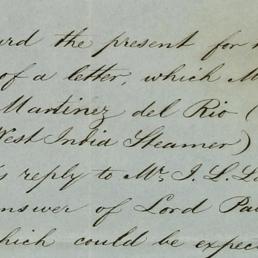 the present for
of a letter, which
Martinez del Rio (
West India Steamer)
reply to Mr. J. L.
answer of Lord
which could be